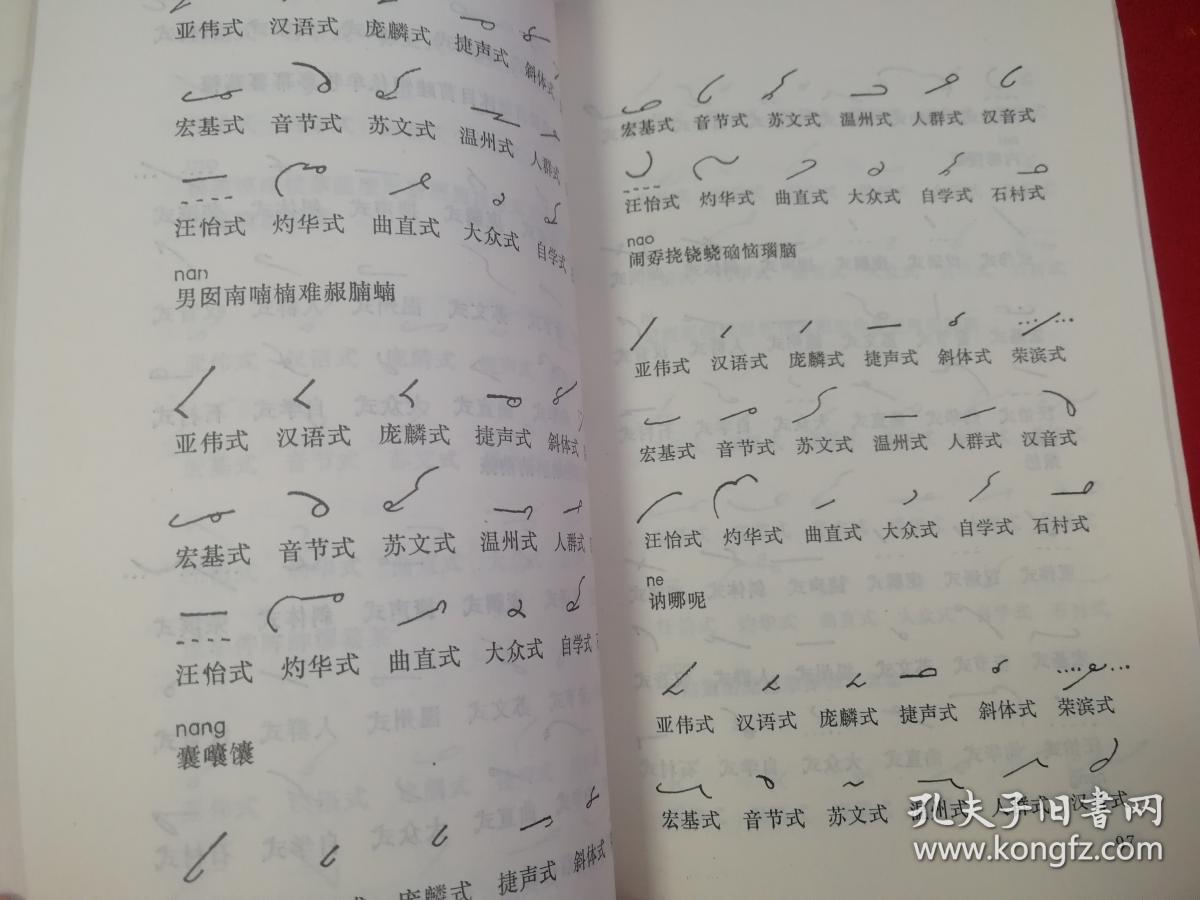 亚伟式 汉语式 庞麟式 捷声式 斜体式
宏基式 音节式 苏文式 温州式 人群式
汪怡式 灼华式 曲直式 大众式 自学式
nan
男囡南喃楠难赧腩蝻
亚伟式 汉语式 庞麟式 捷声式 斜体式
宏基式 音节式 苏文式 温州式 人群式
汪怡式 灼华式 曲直式 大众式 自学式
nang
囊囔馕
庞麟式 捷声式 斜体式
宏基式 音节式 苏文式 温州式 人群式 汉音式
汪怡式 灼华式 曲直式 大众式 自学式 石村式
nao
闹孬挠铙蛲硇恼瑙脑
亚伟式 汉语式 庞麟式 捷声式 斜体式 荣滨式
宏基式 音节式 苏文式 温州式 人群式 汉音式
汪怡式 灼华式 曲直式 大众式 自学式 石村式
ne
讷哪呢
亚伟式 汉语式 庞麟式 捷声式 斜体式 荣滨式
宏基式 音节式 苏文式 温州式 人群式 汉音式
97
孔夫子旧书网
www.kongfz.com